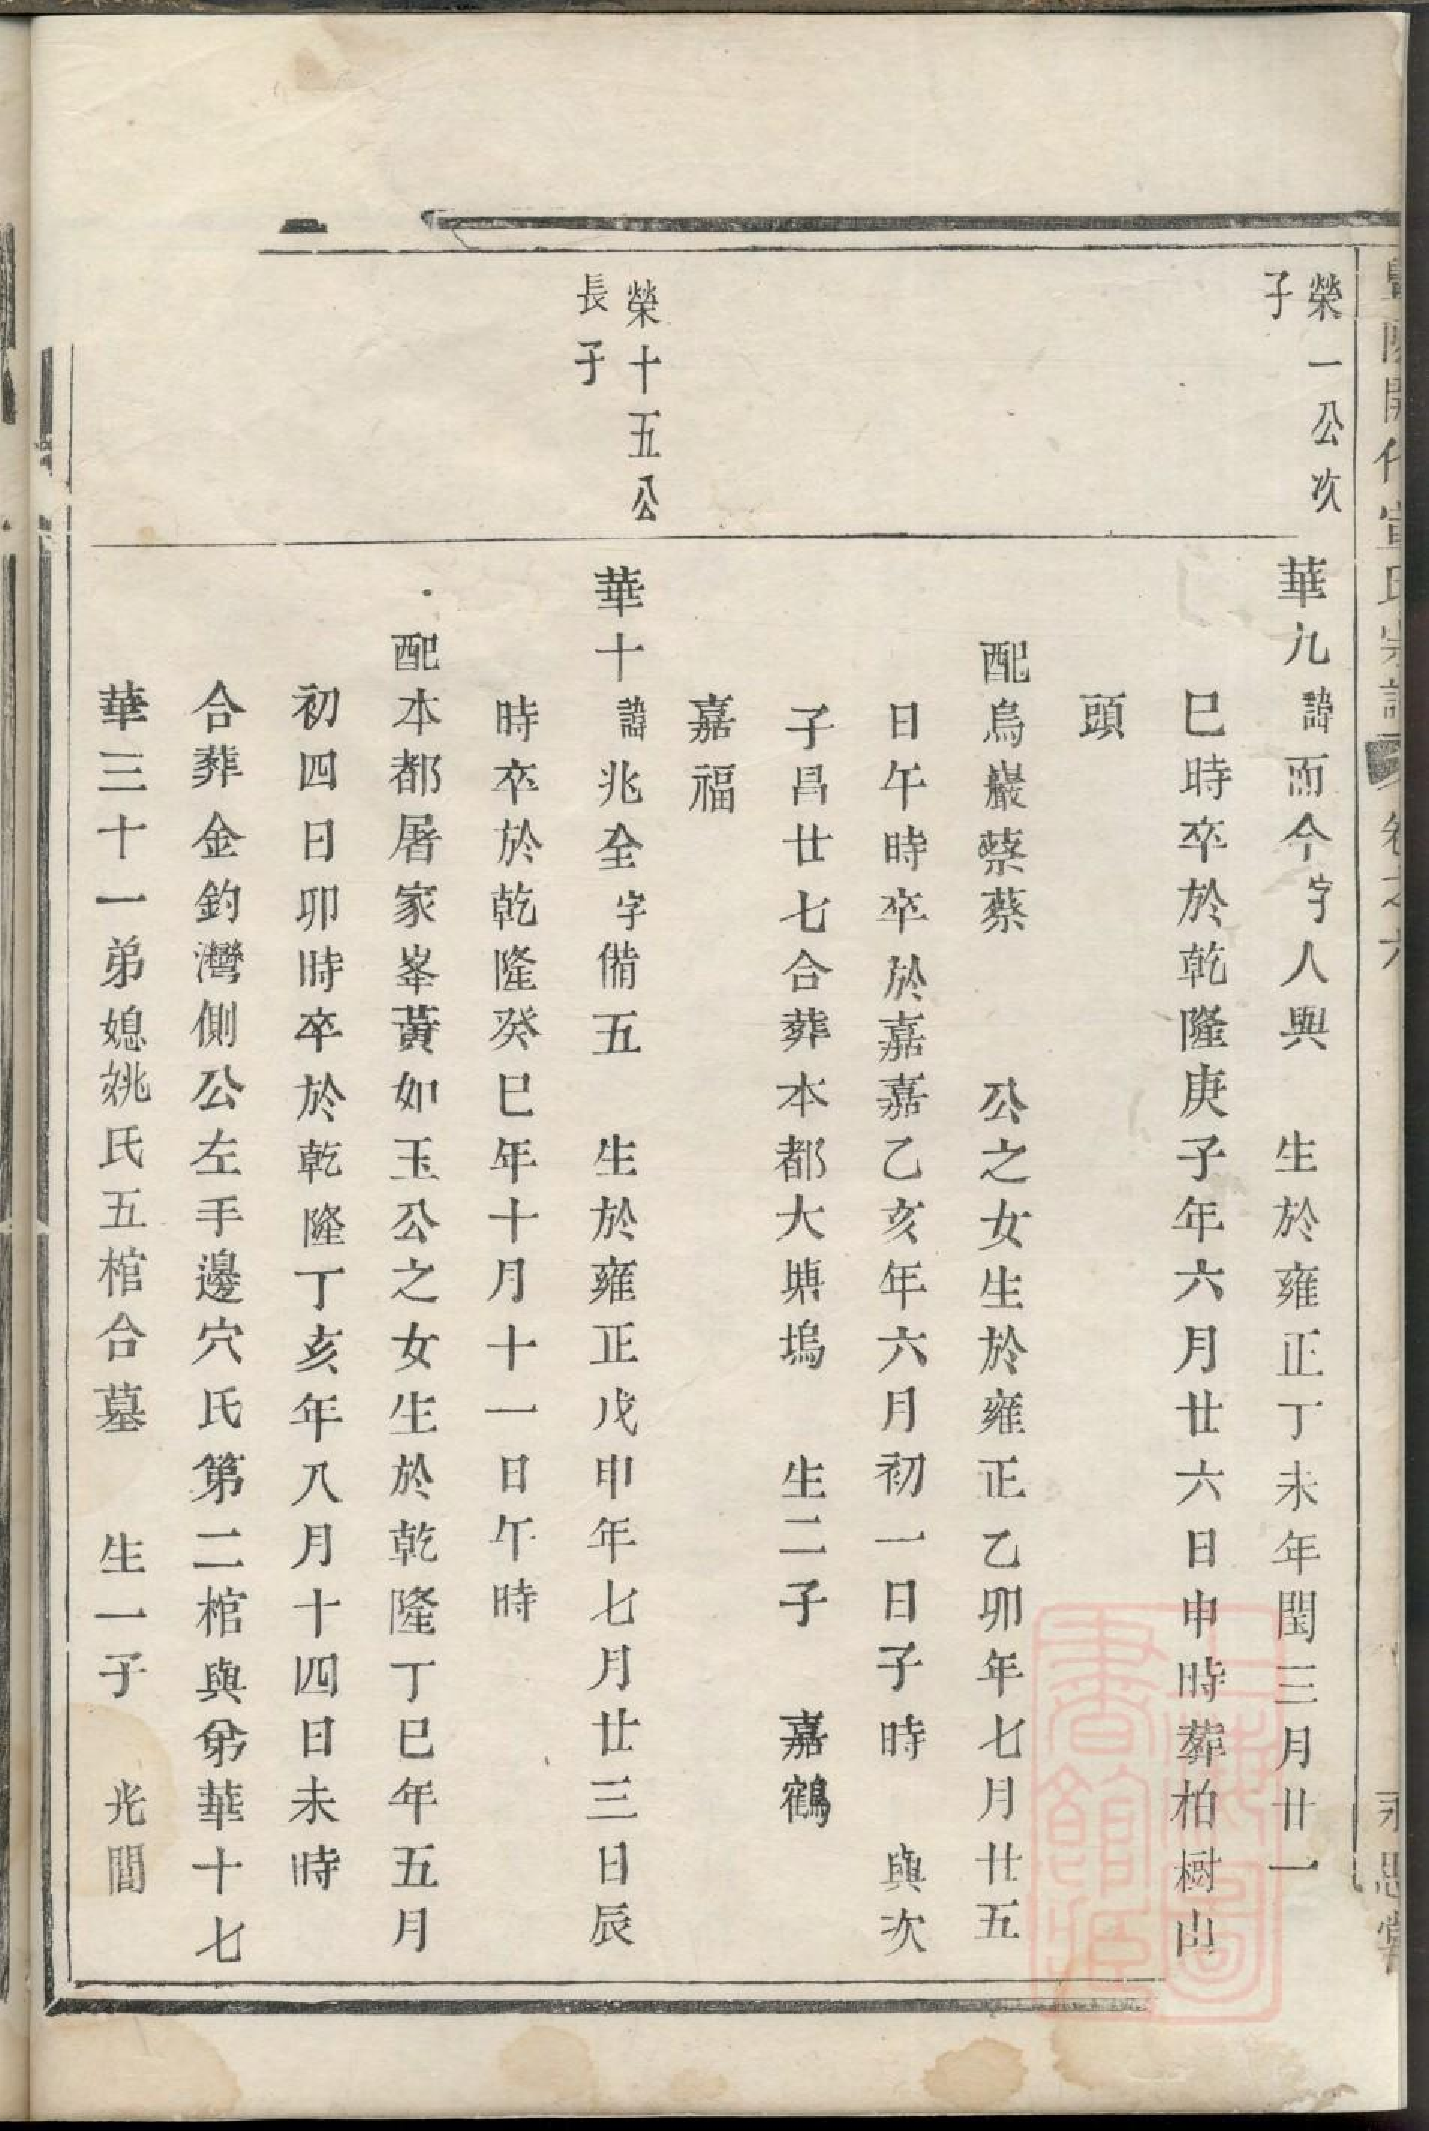 榮一公次
子
華九諱而今字人興　生於雍正丁未年閏三月廿一
巳時卒於乾隆庚子年六月廿六日申時葬柏樹山
頭
配烏巖蔡蔡　　公之女生於雍正乙卯年七月廿五
日午時卒於嘉嘉乙亥年六月初一日子時　與次
子昌廿七合葬本都大塘塢　生二子　嘉鶴
嘉福
榮十五公
長子
華十諱兆全字備五　生於雍正戊申年七月廿三日辰
時卒於乾隆癸巳年十月十一日午時
配本都屠家峯黃如玉公之女生於乾隆丁巳年五月
初四日卯時卒於乾隆丁亥年八月十四日未時
合葬金釣灣側公左手邊穴氏第二棺與弟華十七
華三十一弟媳姚氏五棺合墓　生一子　光閭
上海圖書館藏